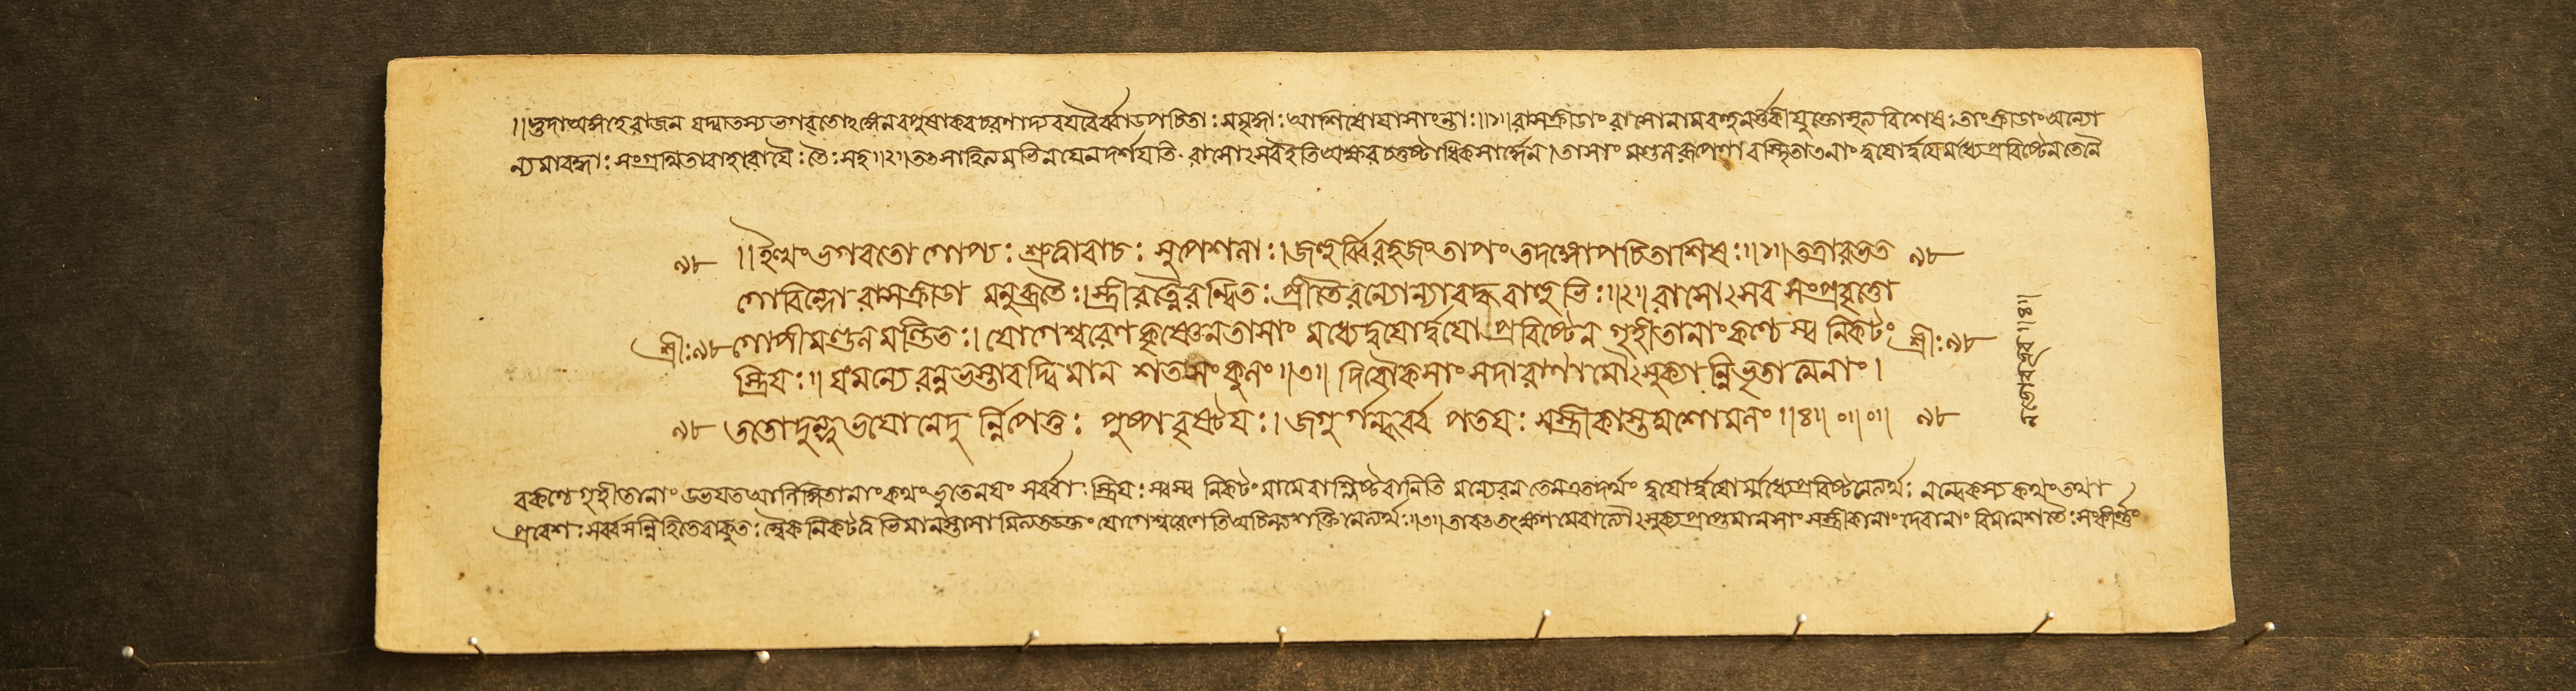 ।।তুদা অঙ্গহে রাজন যদ্বাতস্য ভগবতোঽঙ্গেন বপুষাকরচরণাদ্যবয়বৈর্ব্বাউপচিতাঃ সমৃদ্ধাঃ আশিষোযাসাংন্তাঃ।।১।। রাসক্রীডাং রাসোনামবহুনর্ত্তকীযুক্তোনৃত্যবিশেষঃ তাংক্রীডাং অন্যো
ন্যমাবদ্ধাঃ সংগ্রন্থিতাবাহবোযৈঃ তৈঃ সহ।।২।। তৎসাহিত্যমভিনযেনদর্শযতি রাসোৎসবইতিঅক্ষরচতুষ্টাধিকসার্দ্ধেন। তাসাং মণ্ডলরূপেণাবস্থিতাতনাং দ্বযোর্দ্বযোমধ্যেপ্রবিষ্টেনতেনৈ
৯৮ ।।ইত্থংভগবতোগোপ্যঃ শ্রুত্বোবাচঃ সুপেশলাঃ।জহুর্ব্বিরহজংতাপং তদঙ্গোপচিতাশিষঃ।।১।।তত্রারভত ৯৮
গোবিন্দো রাসক্রীডা মনুব্রতৈঃ।স্ত্রীরত্নৈরন্বিতঃ প্রীতৈরন্যোন্যাবদ্ধবাহুভিঃ।।২।। রাসোৎসব সংপ্রবৃত্তো
শ্রীঃ৯৮ গোপীমণ্ডলমণ্ডিতঃ। যোগেশ্বরেণকৃষ্ণেনতাসাং মধ্যেদ্বযোর্দ্বযো প্রবিষ্টেন গৃহীতানাংকণ্ঠেস্ব নিকটং শ্রীঃ৯৮
স্ত্রিযঃ।। যংমন্যেরন্নভস্তাবদ্বিমান শতসংকুলং।।৩।। দিবৌকসাং সদারাণামৌৎসুক্যান্নিভৃতাত্মনাং।
৯৮ ততোদুন্দুভযোনেদু র্ন্নিপেতুঃ পুষ্পবৃষ্টযঃ। জগু র্গন্ধর্ব্ব পতযঃ সস্ত্রীকাস্তদ্যশোমলং।।৪।। ০।।০।। ৯৮
বকণ্ঠেগৃহীতানাং উভযতআলিঙ্গিতানাং কথংভূতেনযং সর্ব্বা স্ত্রিযঃ স্বস্ব নিকটংমামেবাশ্লিষ্টবানিতি মন্যেরনতেনএতদর্থং দ্বযোর্দ্বযোর্ম্মধ্যেপ্রবিষ্টনেত্যর্থঃ নন্বেকস্য কথংতথা
প্রবেশঃ সর্ব্বসন্নিহিতেবাকুতঃ স্বৈকনিকটত্বাভিমানস্তাসামিত্যতউক্তং যোগেশ্বরেণেতিঅচিন্ত্যশক্তিনেত্যর্থঃ।।৩।।তাবৎতৎক্ষণমেবাত্যৌৎসুক্যপ্রাপ্তমানসাং সস্ত্রীকানাং দেবানাং বিমানশতৈঃ সংকীর্ণ্ণং